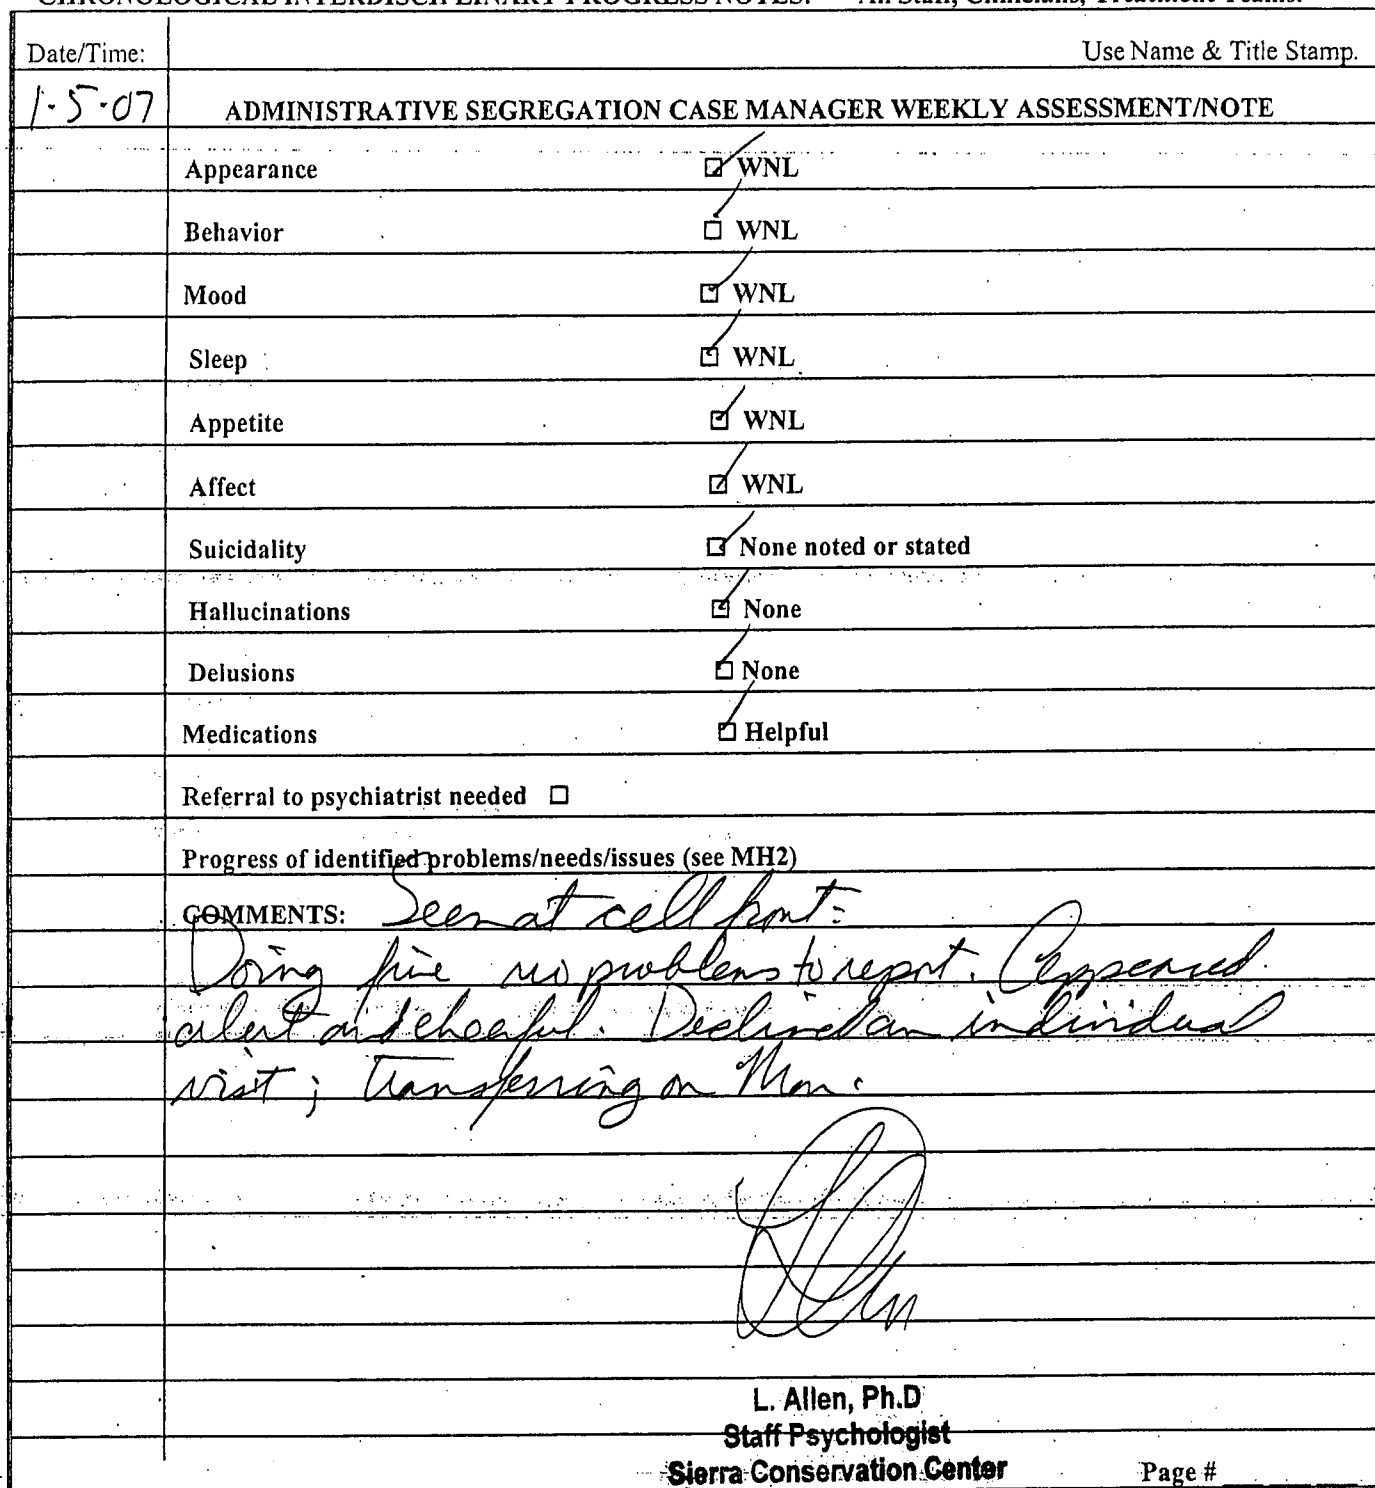 CHRONOLOGICAL INTERDISCIPLINARY PROGRESS NOTES: All Staff, Clinicians, Treatment Teams.
Date/Time: Use Name & Title Stamp.
1-5-07 ADMINISTRATIVE SEGREGATION CASE MANAGER WEEKLY ASSESSMENT/NOTE
Appearance ☑ WNL
Behavior ☑ WNL
Mood ☑ WNL
Sleep ☑ WNL
Appetite ☑ WNL
Affect ☑ WNL
Suicidality ☑ None noted or stated
Hallucinations ☑ None
Delusions ☑ None
Medications ☑ Helpful
Referral to psychiatrist needed ☐
Progress of identified problems/needs/issues (see MH2)
COMMENTS: Seen at cell front:
Doing fine no problems to report. Appeared
alert and cheerful. Declined an individual
visit; transferring on Mon.
L. Allen, Ph.D
Staff Psychologist
Sierra Conservation Center Page #